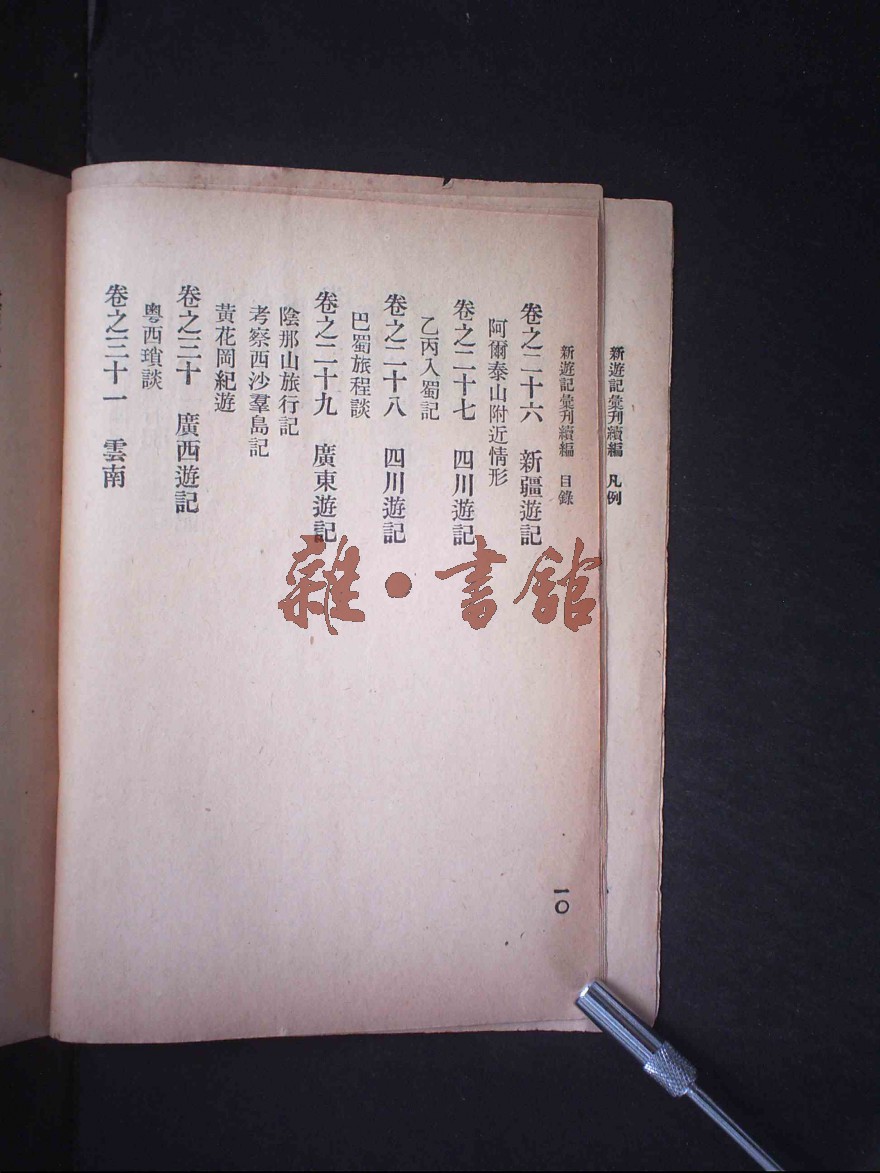 新遊記彙刋續編　凡例
新遊記彙刋續編　目錄
卷之二十六　新疆遊記
阿爾泰山附近情形
卷之二十七　四川遊記
乙丙入蜀記
卷之二十八　四川遊記
巴蜀旅程談
卷之二十九　廣東遊記
陰那山旅行記
考察西沙羣島記
黃花岡紀遊
卷之三十　廣西遊記
粵西瑣談
卷之三十一　雲南
一〇
雜・書館